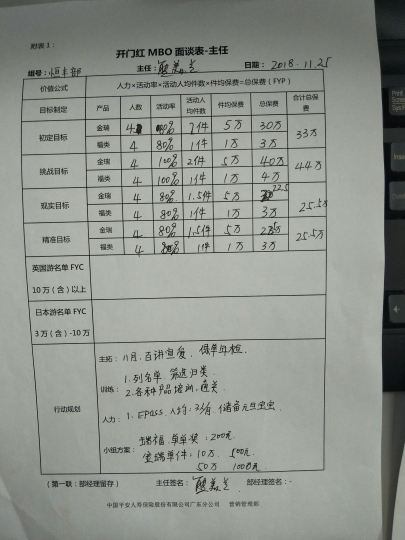 附表1：
开门红 MBO 面谈表-主任
组号：恒丰部 主任： 日期：2018.11.25
价值公式 人力×活动率×活动人均件数×件均保费=总保费（FYP）
目标制定 产品 人数 活动率 活动人均件数 件均保费 总保费 合计总保费
初定目标 金瑞 4 80% 2件 5万 30万 33万
福类 4 80% 1件 1万 3万
挑战目标 金瑞 4 100% 2件 5万 40万 44万
福类 4 100% 1件 1万 4万
现实目标 金瑞 4 80% 1.5件 5万 22.5 25.5万
福类 4 80% 1件 1万 3万
精准目标 金瑞 4 80% 1.5件 5万 25.5万
福类 4 80% 1件 1万 3万
英国游名单 FYC
10 万（含）以上
日本游名单 FYC
3 万（含）-10 万
行动规划
主拓：八月，百讲宣爱，保单年检
训练：1.列名单 筛选归类.
2.各种产品培训，通关.
人力：1. EPass. 人均：
小组方案：金瑞福.单单奖：200元
金瑞单件：10万. 500元
50万 1000元
（第一联：部经理留存） 主任签名： 部经理签名：
中国平安人寿保险股份有限公司广东分公司 营销管理部